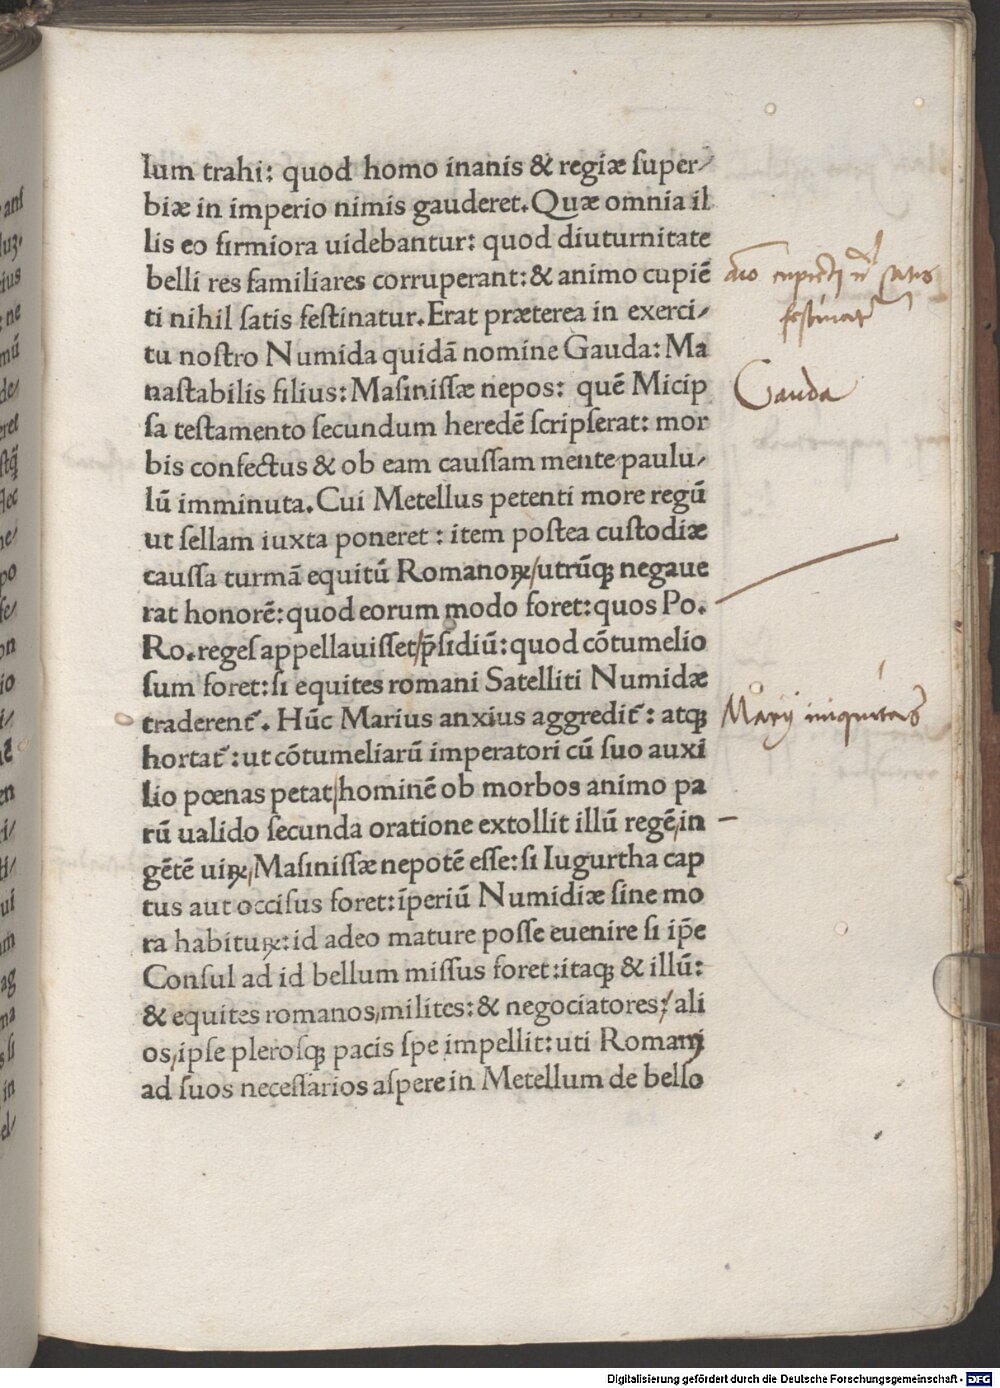 lum trahi: quod homo inanis & regiæ ſuper/
biæ in imperio nimis gauderet. Quæ omnia il
lis eo firmiora uidebantur: quod diuturnitate
belli res familiares corruperant: & animo cupiē
ti nihil ſatis feſtinatur. Erat præterea in exerci/
tu noſtro Numida quidā nomine Gauda: Ma
naſtabilis filius: Maſiniſſæ nepos: quē Micip
ſa teſtamento ſecundum heredē ſcripſerat: mor
bis confectus & ob eam cauſſam mente paulu/
lū imminuta. Cui Metellus petenti more regū
ut ſellam iuxta poneret: item poſtea cuſtodiæ
cauſſa turmā equitū Romanoꝝ/utrūqꝫ negaue
rat honorē: quod eorum modo foret: quos Po.
Ro. regeſ appellauiſſet/p̄ſidiū: quod cōtumelio
ſum foret: ſi equites romani Satelliti Numidæ
traderent̃. Hūc Marius anxius aggredit̃: atqꝫ
hortat̃: ut cōtumeliarū imperatori cū ſuo auxi
lio pœnas petat/hominē ob morbos animo pa
rū ualido ſecunda oratione extollit illū regē/in
gētē uiꝝ/Maſiniſſæ nepotē eſſe: ſi Iugurtha cap
tus aut occiſus foret: īperiū Numidiæ ſine mo
ra habituꝝ: id adeo mature poſſe euenire ſi ip̄e
Conſul ad id bellum miſſus foret: itaqꝫ & illū:
& equites romanos/milites: & negociatores:/ali
os/ipſe pleroſqꝫ pacis ſpe impellit: uti Romanj
ad ſuos neceſſarios aſpere in Metellum de bello
aīo cupiēti n̄l ſatis
feſtinat̃
Gauda
Marij iniquitas
Digitalisierung gefördert durch die Deutsche Forschungsgemeinschaft - DFG